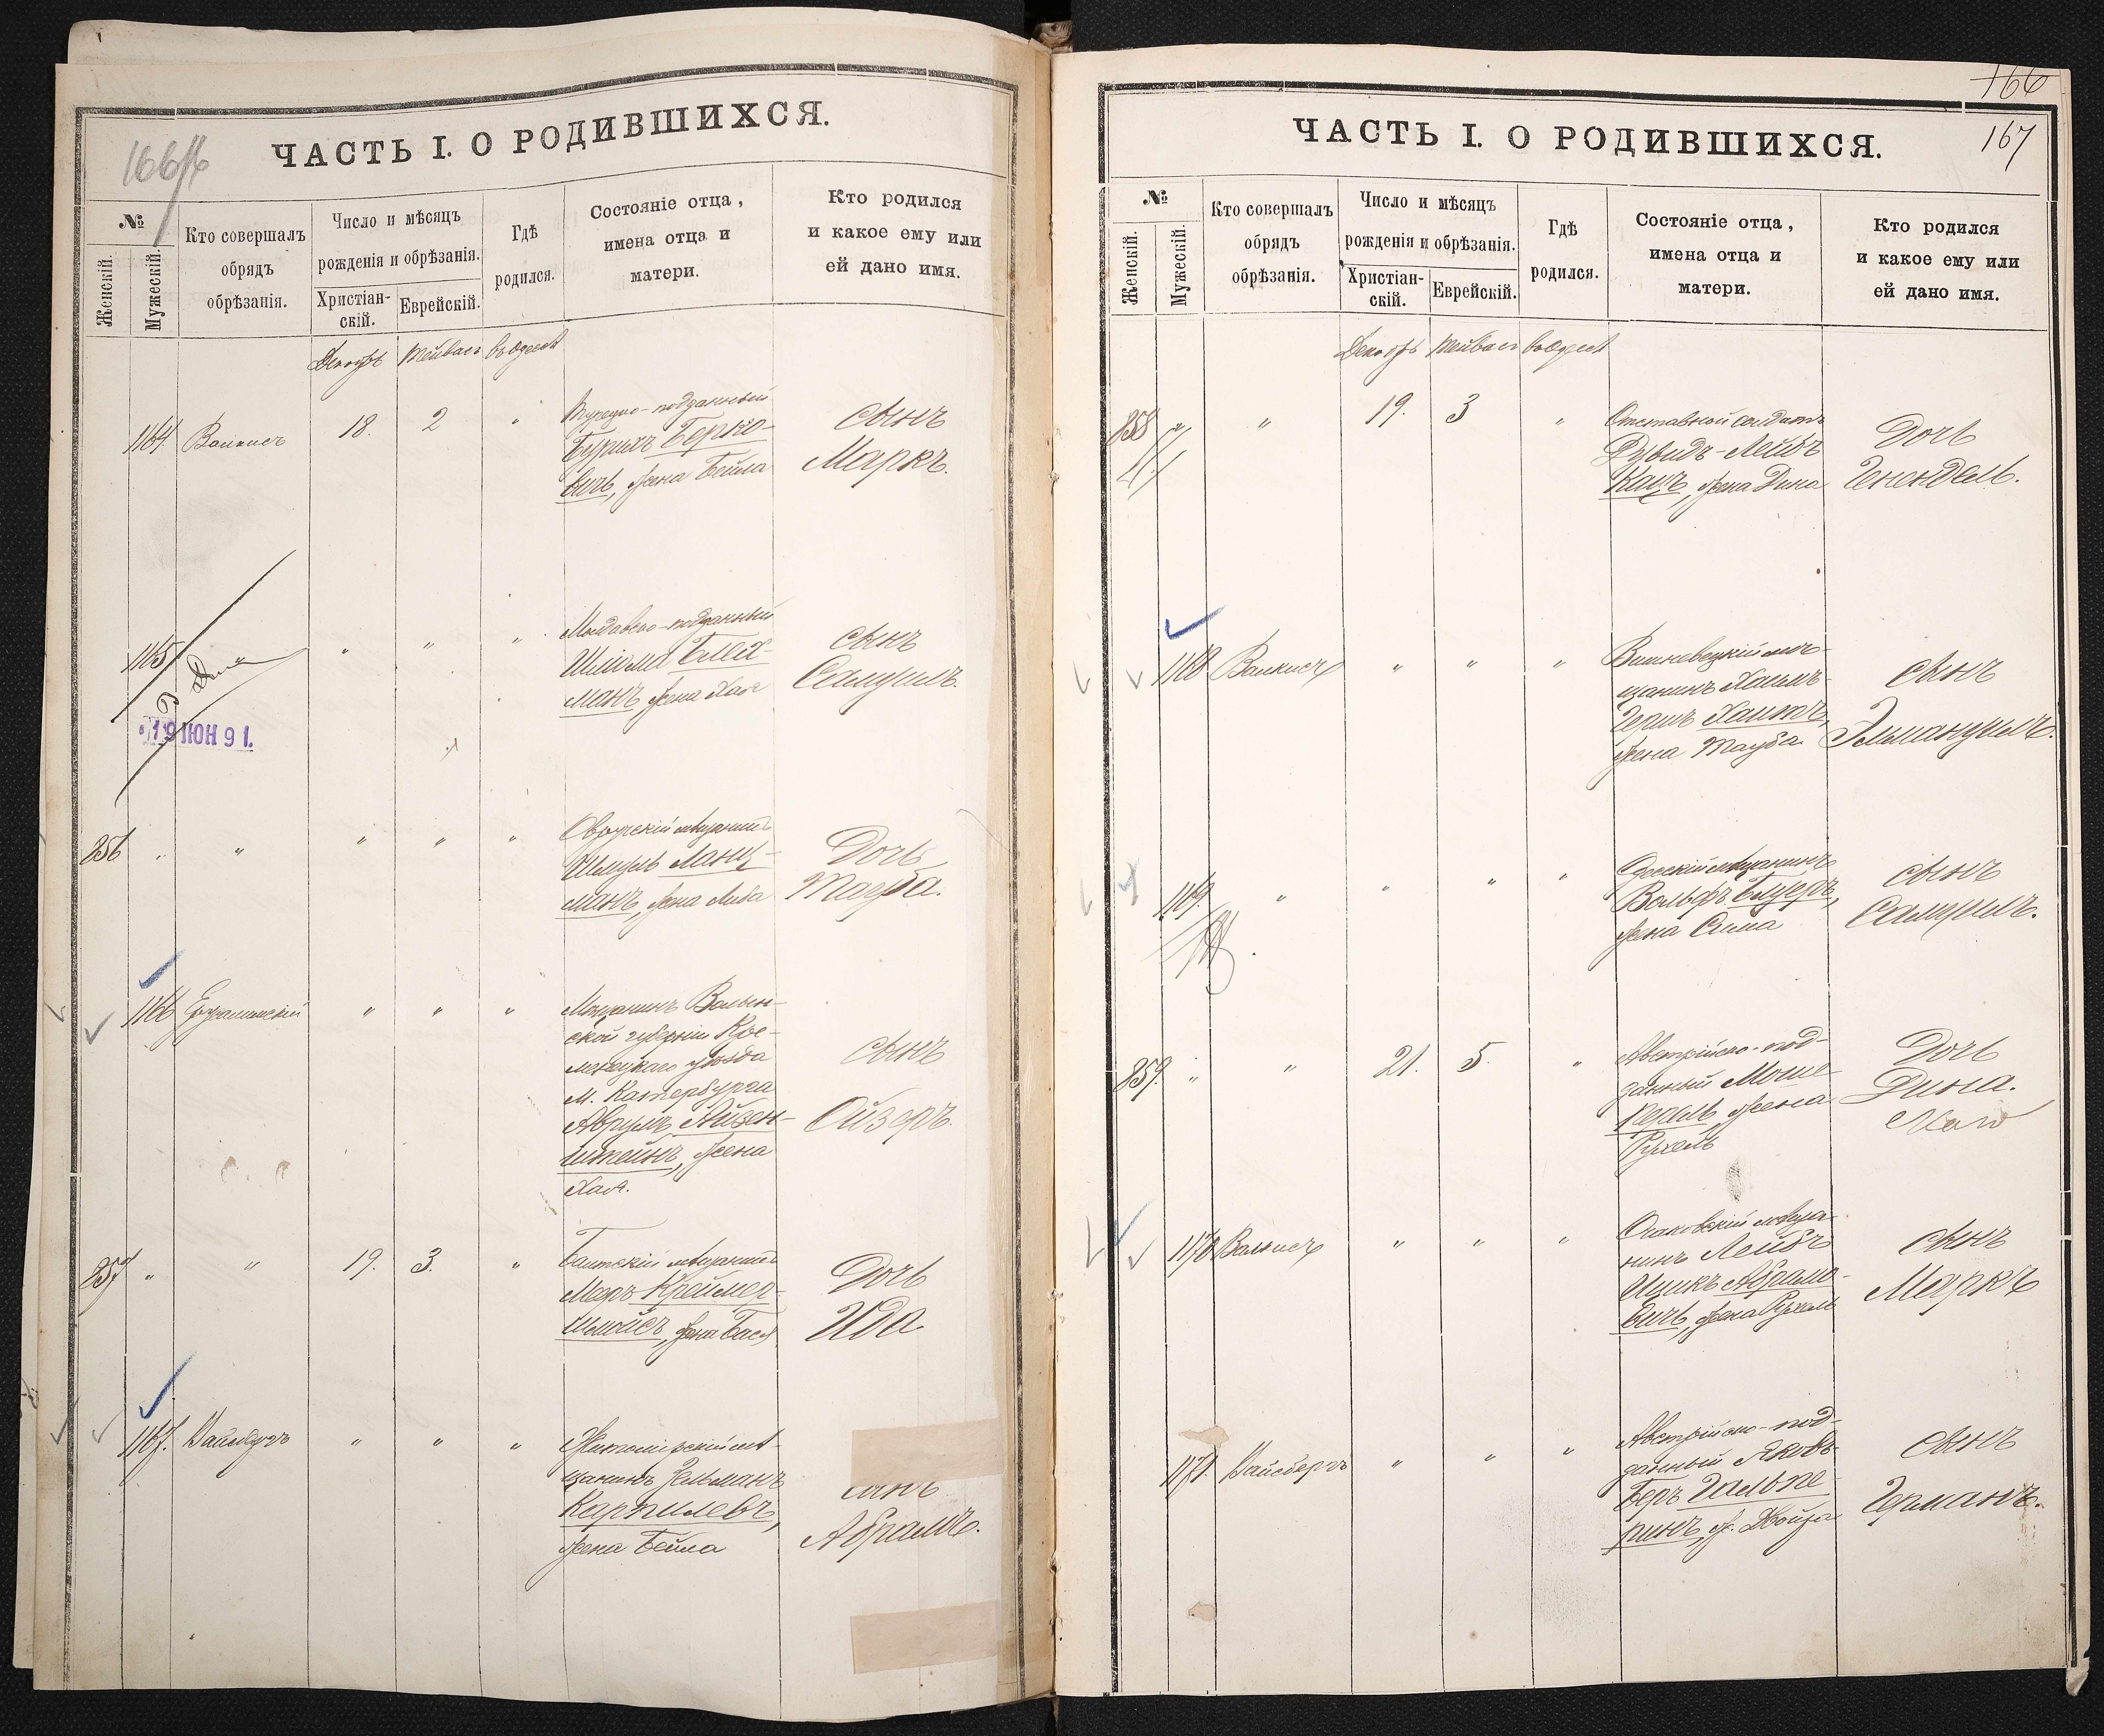 166
ЧАСТЬ I. О РОДИВШИХСЯ.
№
Женскій.
Мужескій.
Кто совершалъ
обрядъ
обрѣзанія.
Число и мѣсяцъ
рожденія и обрѣзанія.
Христіан-
скій.
Еврейскій.
Гдѣ
родился.
Состояніе отца,
имена отца и
матери.
Кто родился
и какое ему или
ей дано имя.
Декабрь Тейвасъ въ Одессѣ
1164. 18. 2 "
Турецко-подданный
Берко-
вичъ, жена Бейла
сынъ
Маркъ.
1165 " " "
Молдавско-подданный
Шлиома Блех-
манъ жена Хая
сынъ
Самуилъ.
19 ІЮН 91.
856 " " " " "
Овручскій мѣщанинъ
Шмуль Ланц-
манъ, жена Либа
Дочь
Тауба.
1166 " " "
Мѣщанинъ Волын-
ской губерніи Кре-
менецкаго уѣзда
м. Катербурга
Аврумъ Айзен-
штейнъ, жена
Хая.
сынъ
Ойзеръ.
857 " " 19. 3. "
мѣщанинъ
Мееръ Креймер-
жена Бася
Дочь
Ида
1167. " " "
Житомірскій мѣ-
щанинъ Зельманъ
Карпилевъ,
жена Бейла
сынъ
Абрамъ.
166
167
ЧАСТЬ I. О РОДИВШИХСЯ.
№
Женскій.
Мужескій.
Кто совершалъ
обрядъ
обрѣзанія.
Число и мѣсяцъ
рожденія и обрѣзанія.
Христіан-
скій.
Еврейскій.
Гдѣ
родился.
Состояніе отца,
имена отца и
матери.
Кто родился
и какое ему или
ей дано имя.
Декабрь Тейвасъ въ Одессѣ
858 " " 19. 3 "
Отставной солдатъ
Дувидъ-Лейбъ
Кацъ, жена Дина
Дочь
Генендель.
1168 " " "
Вишневецкій мѣ-
щанинъ Хаимъ-
Гершъ Хаитъ,
жена Тауба
сынъ
Эльмануилъ.
1169. " " " "
Одесскій мѣщанинъ
Вольфъ
жена Сима
сынъ
Самуилъ.
859. " " 21. 5. "
Австрійско-под-
данный Моше
жена
Рухель
Дочь
Дина.
1170 " " "
Очаковскій мѣща-
нинъ Лейбъ
Ицикъ Абрамо-
вичъ, жена Рухель
сынъ
Маркъ
1171. Вайсбергъ " " "
Австрійско-под-
данный Яковъ-
Беръ Гальпе-
ринъ, ж. Двойра
сынъ
Германъ.